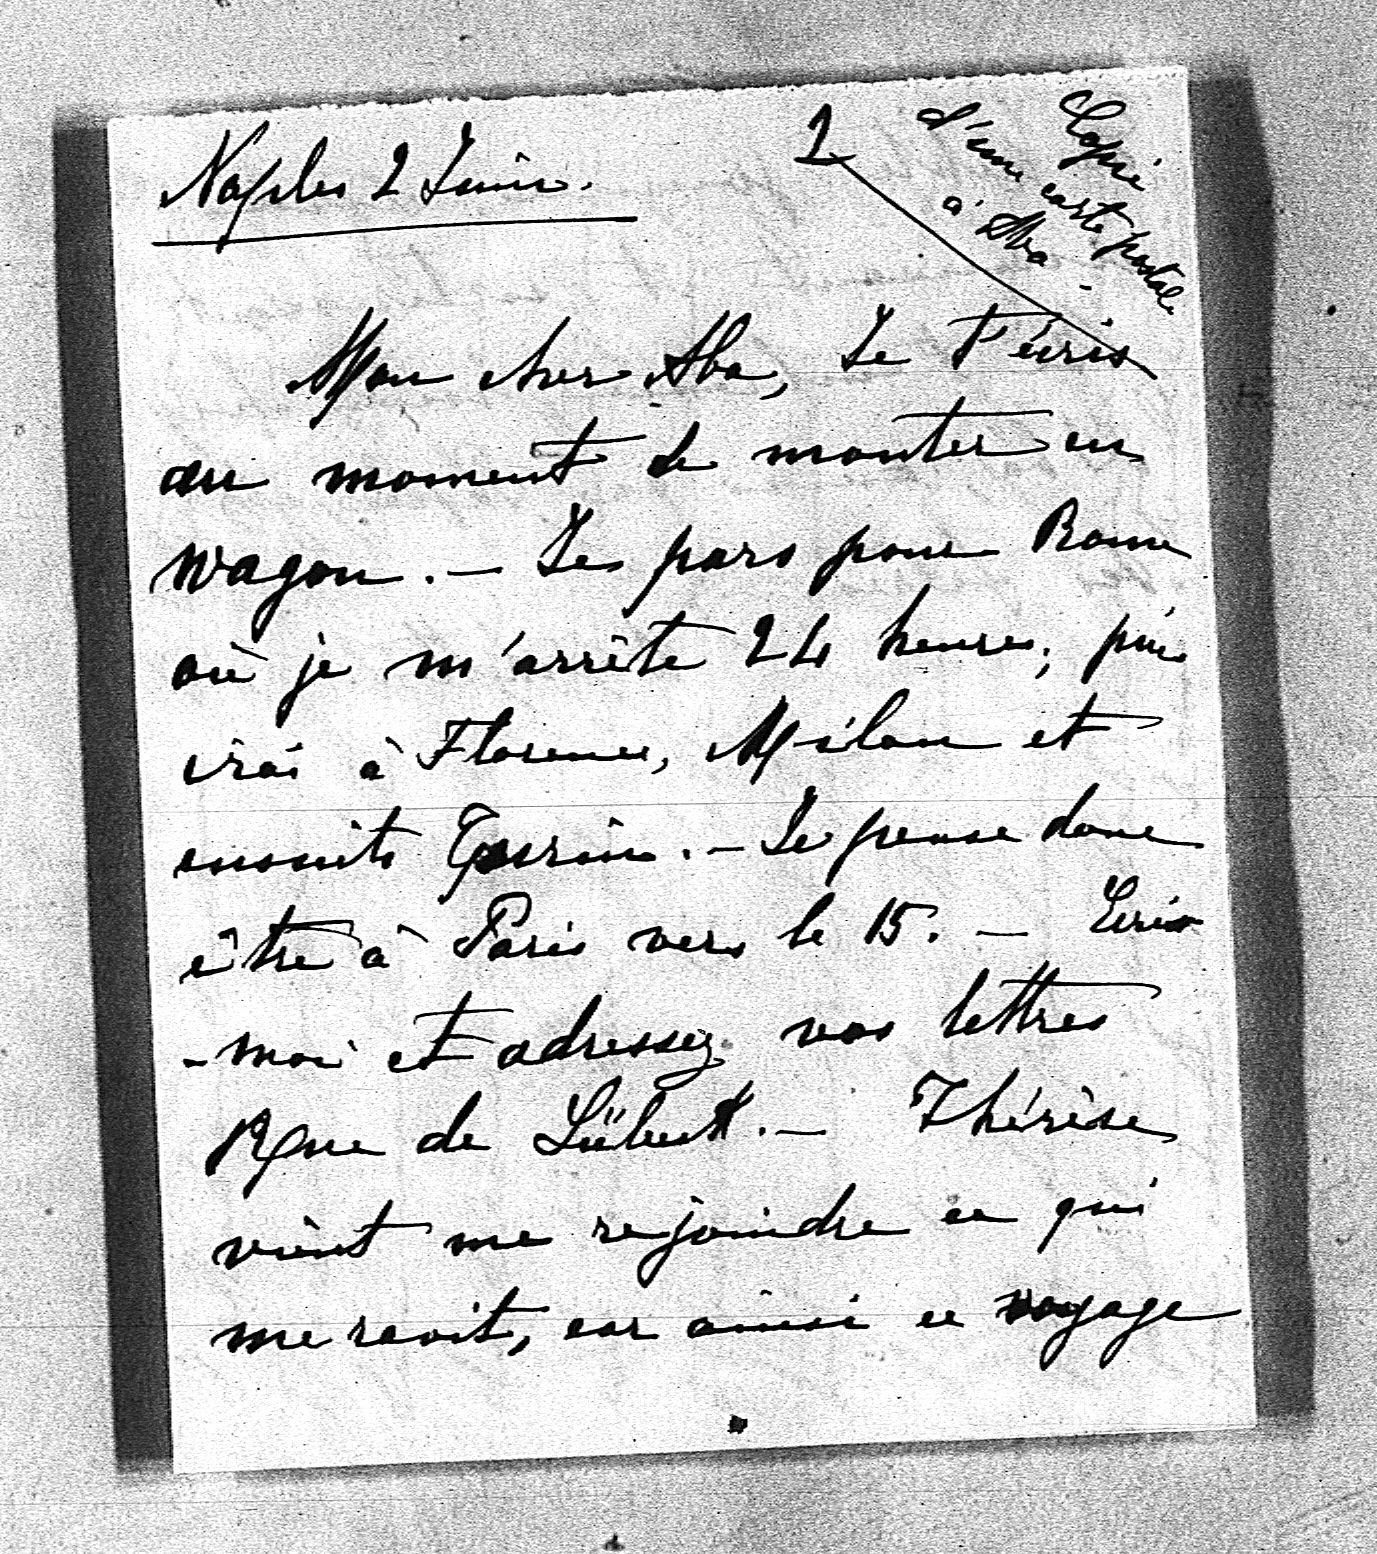 Naples 2 Juin.
1
Copie
d'une carte postale
à Aba
Mon cher Aba, Je t'écris
au moment de monter en
wagon. — Je pars pour Rome
où je m'arrête 24 heures; puis
irai à Florence, Milan et
ensuite Turin. — Je pense donc
être à Paris vers le 15. — Ecris
-moi et adressez vos lettres
Rue de Lübeck. — Thérèse
vient me rejoindre ce qui
me ravit, car ainsi ce voyage